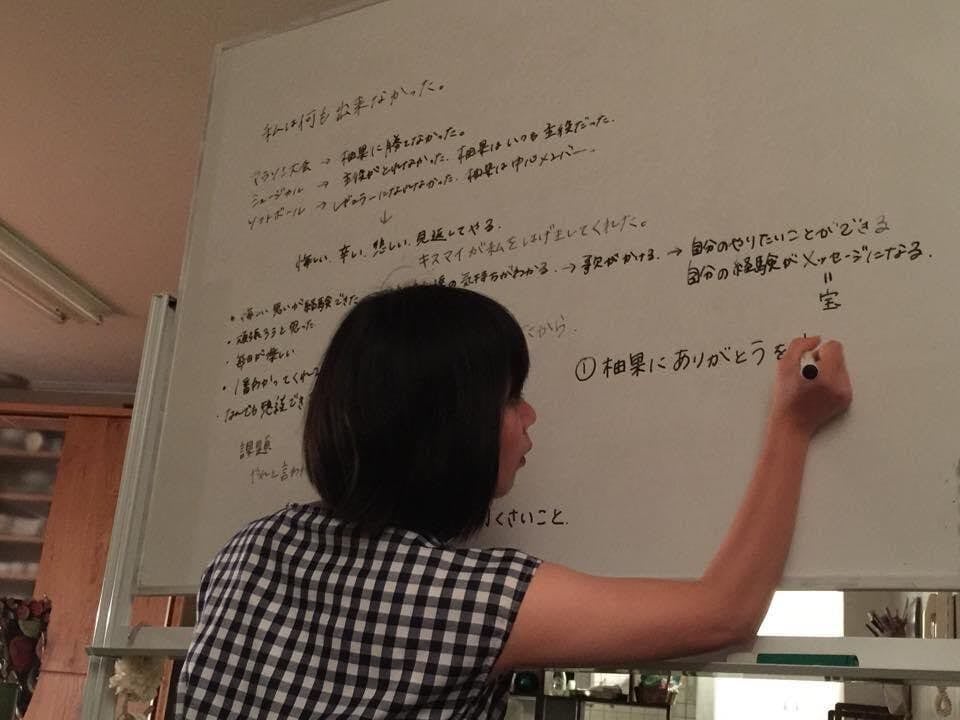 私は何も出来なかった。
マラソン大会 → 柚果に勝てなかった。
ミュージカル → 主役がとれなかった。柚果はいつも主役だった。
ソフトボール → レギュラーになれなかった。柚果は中心メンバー。
↓
悔しい、辛い、悲しい、見返してやる。
キスマイが私をはげましてくれた。
・悔しい思いが経験できた
の気持ちがわかる。→ 歌がかける。→ 自分のやりたいことができる
自分の経験がメッセージになる。
=
宝
・頑張ろうと思った
・毎日が楽しい
だから、
①柚果にありがとうを
課題
やれと言わ
くさいこと。